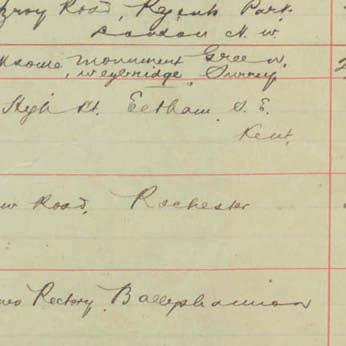 Road, Regents Park.
London N.W
Monument Green,
Weybridge, Surrey
High St. Eltham. S.E.
Kent.
Road, Rochester
Rectory,